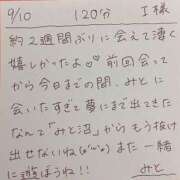 9/10 120分 I様
約2週間ぶりに会えて凄く
嬉しかったよ♡♡前回会って
から今日までの間、みとに
会いたすぎて夢にまで出てきた
なんて「みと沼」からもう抜け
出せないいね(о'∀'о) また一緒
に遊ぼうね!!
みと